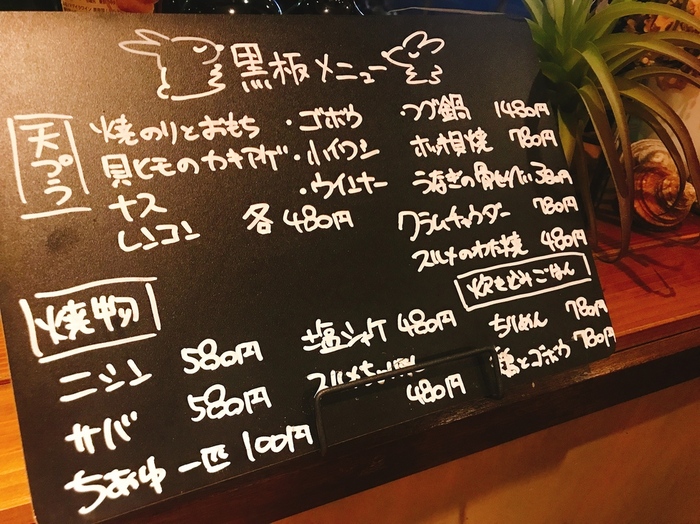 黒板メニュー
天ぷら
焼のりとおもち
貝ヒモのカキアゲ
ナス
レンコン
・ゴボウ
・小イワシ
・ウインナー
各480円
・ツブ鍋 1480円
ホッキ貝焼 780円
うなぎの骨せんべい 380円
クラムチャウダー 780円
スルメのわた焼 480円
焼物
ニシン 580円
サバ 580円
ちあゆ 一匹 100円
塩シャケ 480円
スルメ
480円
炊き込みごはん
ちりめん 780円
とゴボウ 780円